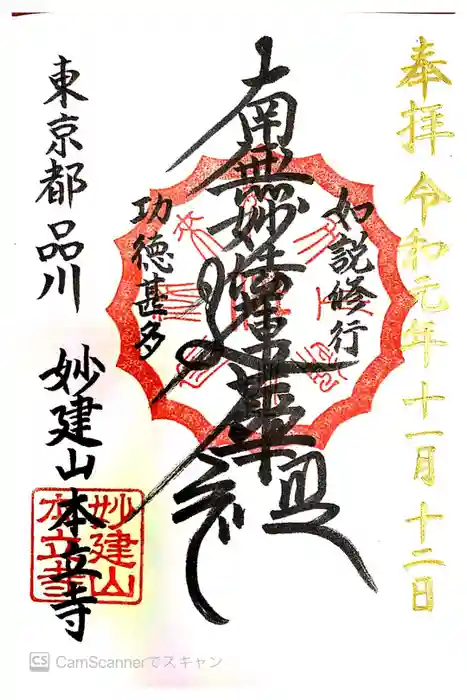 奉拝 令和元年十一月十二日
如説修行
南無妙法蓮華経
功徳甚多
東京都品川 妙建山本立寺
妙建山
本立寺
CS CamScannerでスキャン